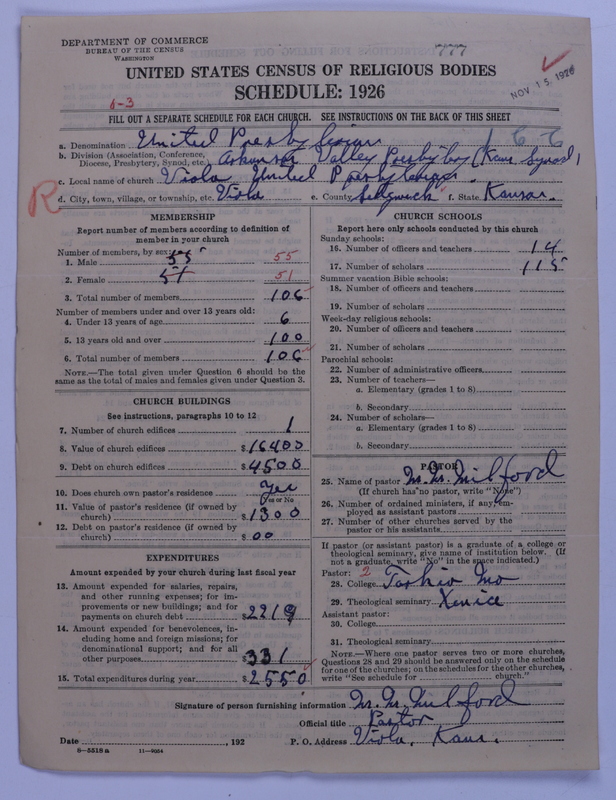 DEPARTMENT OF COMMERCE
BUREAU OF THE CENSUS
WASHINGTON
777
UNITED STATES CENSUS OF RELIGIOUS BODIES
SCHEDULE: 1926
NOV 15 1926
6-3
FILL OUT A SEPARATE SCHEDULE FOR EACH CHURCH. SEE INSTRUCTIONS ON THE BACK OF THIS SHEET
a. Denomination United Presbyterian
166
b. Division (Association, Conference, Diocese, Presbytery, Synod, etc.) Arkansas Valley Presbytery (Kans Synod)
c. Local name of church Viola United Presbyterian
R
d. City, town, village, or township, etc. Viola e. County Sedgwick f. State Kansas
MEMBERSHIP
Report number of members according to definition of
member in your church
Number of members, by sex:
1. Male 55 55
2. Female 51 51
3. Total number of members 106
Number of members under and over 13 years old:
4. Under 13 years of age 6
5. 13 years old and over 100
6. Total number of members 106
NOTE.—The total given under Question 6 should be the
same as the total of males and females given under Question 3.
CHURCH BUILDINGS
See instructions, paragraphs 10 to 12
7. Number of church edifices 1
8. Value of church edifices $16400
9. Debt on church edifices $4500
10. Does church own pastor's residence Yes
Yes or No
11. Value of pastor's residence (if owned by
church) $1300
12. Debt on pastor's residence (if owned by
church) $00
EXPENDITURES
Amount expended by your church during last fiscal year
13. Amount expended for salaries, repairs,
and other running expenses; for im-
provements or new buildings; and for
payments on church debt $2219
14. Amount expended for benevolences, in-
cluding home and foreign missions; for
denominational support; and for all
other purposes $331
15. Total expenditures during year $2550
CHURCH SCHOOLS
Report here only schools conducted by this church
Sunday schools:
16. Number of officers and teachers 14
17. Number of scholars 115
Summer vacation Bible schools:
18. Number of officers and teachers
19. Number of scholars
Week-day religious schools:
20. Number of officers and teachers
21. Number of scholars
Parochial schools:
22. Number of administrative officers
23. Number of teachers—
a. Elementary (grades 1 to 8)
b. Secondary
24. Number of scholars—
a. Elementary (grades 1 to 8)
b. Secondary
PASTOR
25. Name of pastor M. M. Milford
(If church has no pastor, write "None")
26. Number of ordained ministers, if any, em-
ployed as assistant pastors
27. Number of other churches served by the
pastor or his assistants
If pastor (or assistant pastor) is a graduate of a college or
theological seminary, give name of institution below. (If
not a graduate, write "No" in the space indicated.)
Pastor: 2
28. College Tarkio Mo
29. Theological seminary Xenia
Assistant pastor:
30. College
31. Theological seminary
NOTE.—Where one pastor serves two or more churches,
Questions 28 and 29 should be answered only on the schedule
for one of the churches; on the schedules for the other churches,
write "See schedule for church."
Signature of person furnishing information M. M. Milford
Official title Pastor
Date , 192 P. O. Address Viola, Kans.
8-5518 a 11-9054